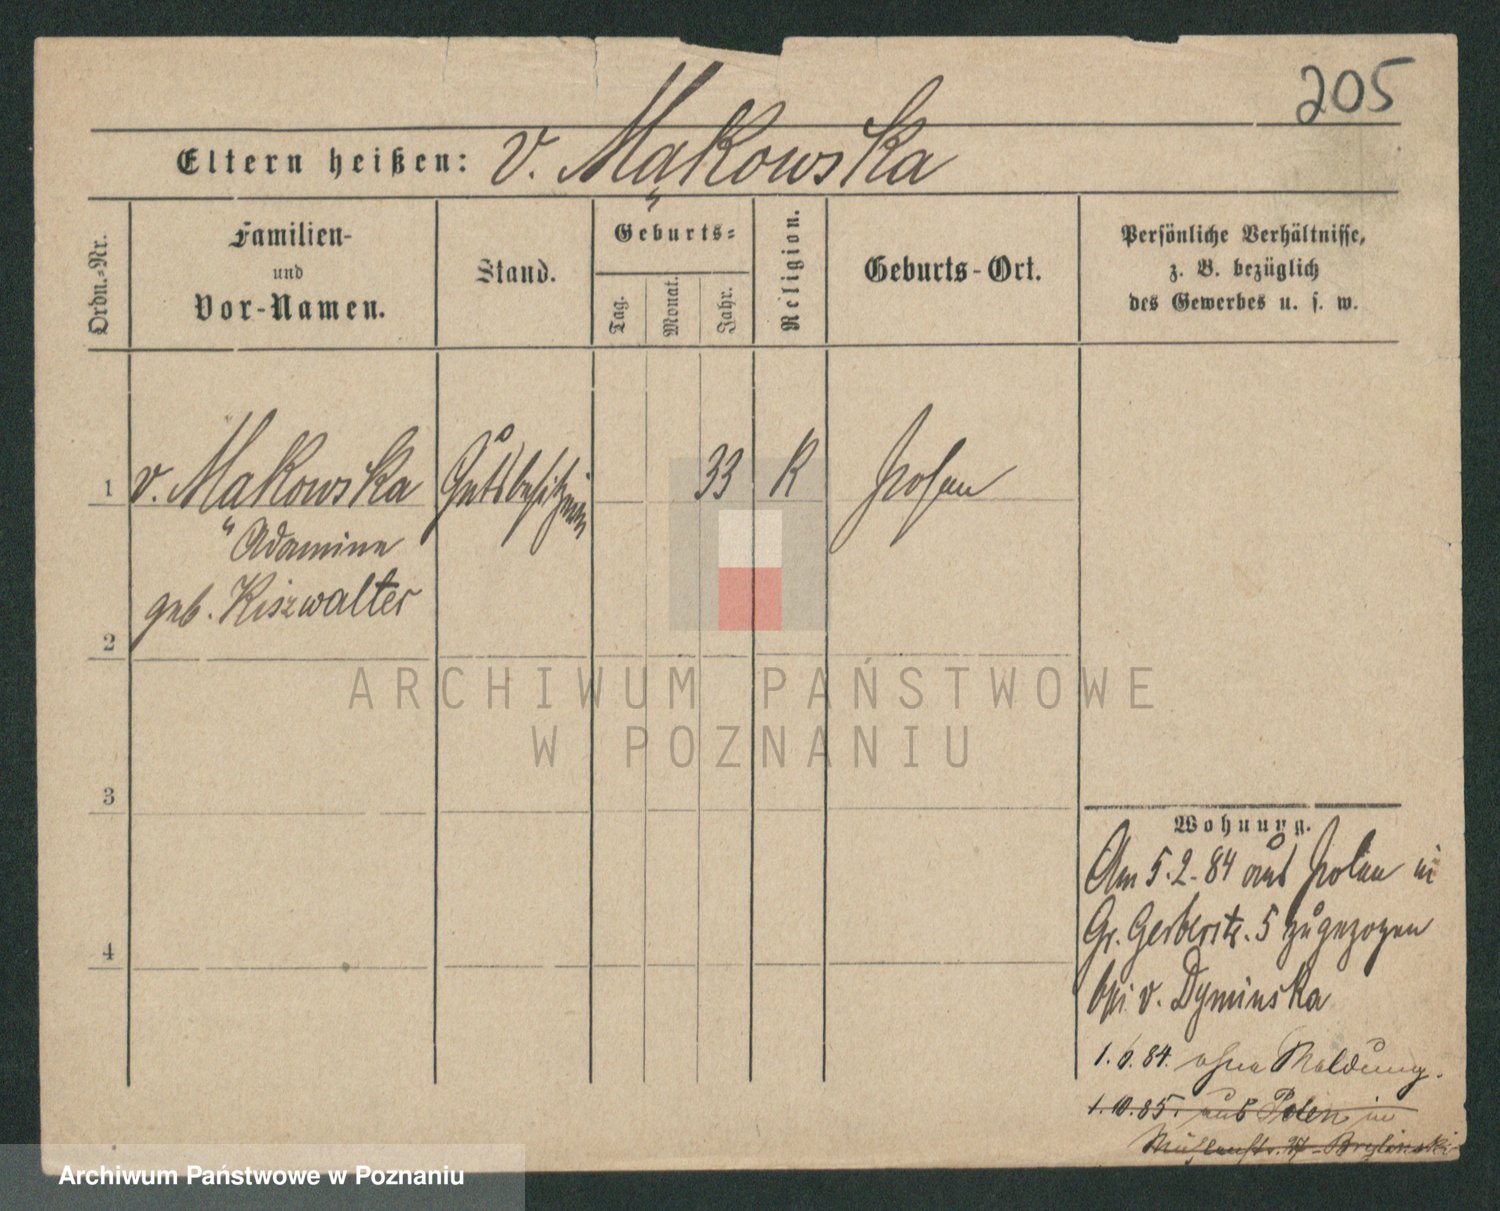 205
Eltern heißen: v. Mąkowska
Ordn.=Nr.
Familien-
und
Vor-Namen.
Stand.
Geburts=
Tag.
Monat.
Jahr.
Religion.
Geburts-Ort.
Persönliche Verhältnisse,
z. B. bezüglich
des Gewerbes u. s. w.
1 v. Makowska Gutsbesitzerin 33 K Polen
Adamine
geb. Kiszwalter
2
3
4
Wohnung.
Am 5.2.84 aus Polen in
Gr. Gerberstr. 5 zugezogen
bei v. Dyminska
1.6.84. ohne Meldung.
1.10.85. aus Polen in
Mühlenstr. Brylinski
ARCHIWUM PAŃSTWOWE
W POZNANIU
Archiwum Państwowe w Poznaniu